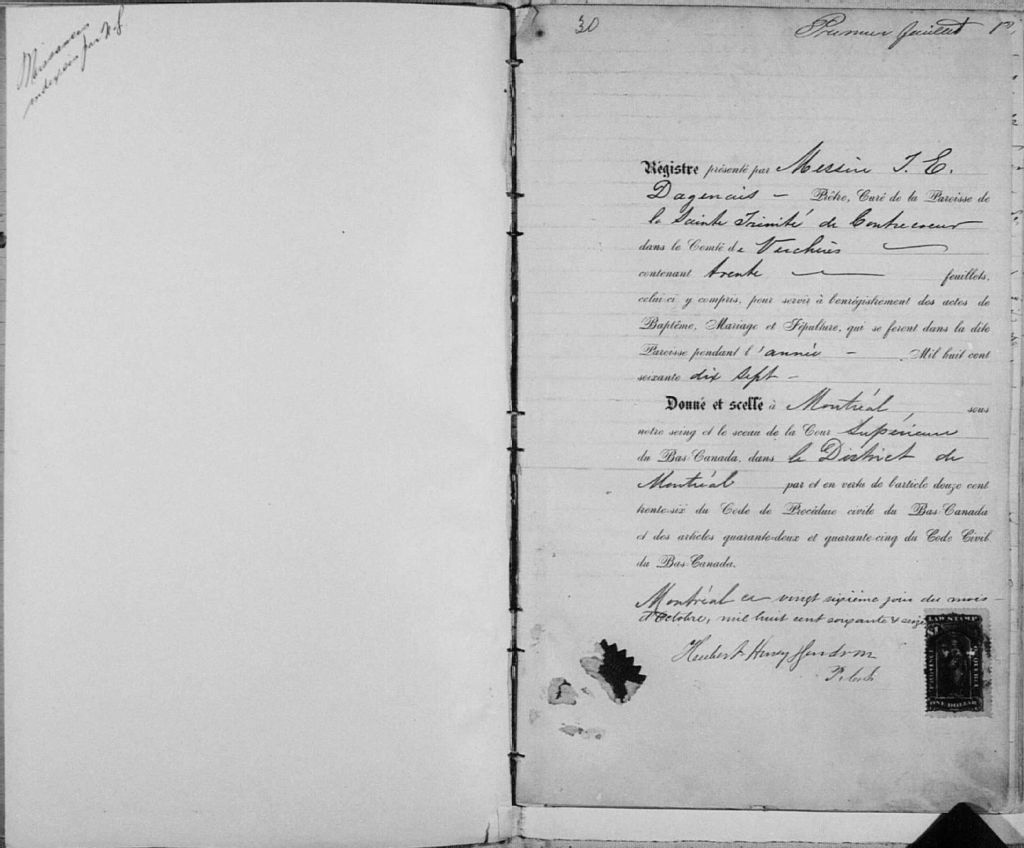 Naissances
indexées par
30
Premier feuillet
Régistre présenté par Messire J. E.
Dagenais – Prêtre, Curé de la Paroisse de
la Sainte Trinité de Contrecoeur
dans le Comté de Verchères
contenant trente feuillets,
celui-ci y compris, pour servir à l'enrégistrement des actes de
Baptême, Mariage et Sépulture, qui se feront dans la dite
Paroisse pendant l'année – Mil huit cent
soixante dix sept –
Donné et scellé à Montréal sous
notre seing et le sceau de la Cour Supérieure
du Bas-Canada, dans le District de
Montréal par et en vertu de l'article douze cent
trente-six du Code de Procédure civile du Bas-Canada
et des articles quarante-deux et quarante-cinq du Code Civil
du Bas-Canada.
Montréal ce vingt sixième jour du mois
d'Octobre, mil huit cent soixante & seize
Hubert Henry
LAW STAMP
PROVINCE
QUEBEC
ONE DOLLAR